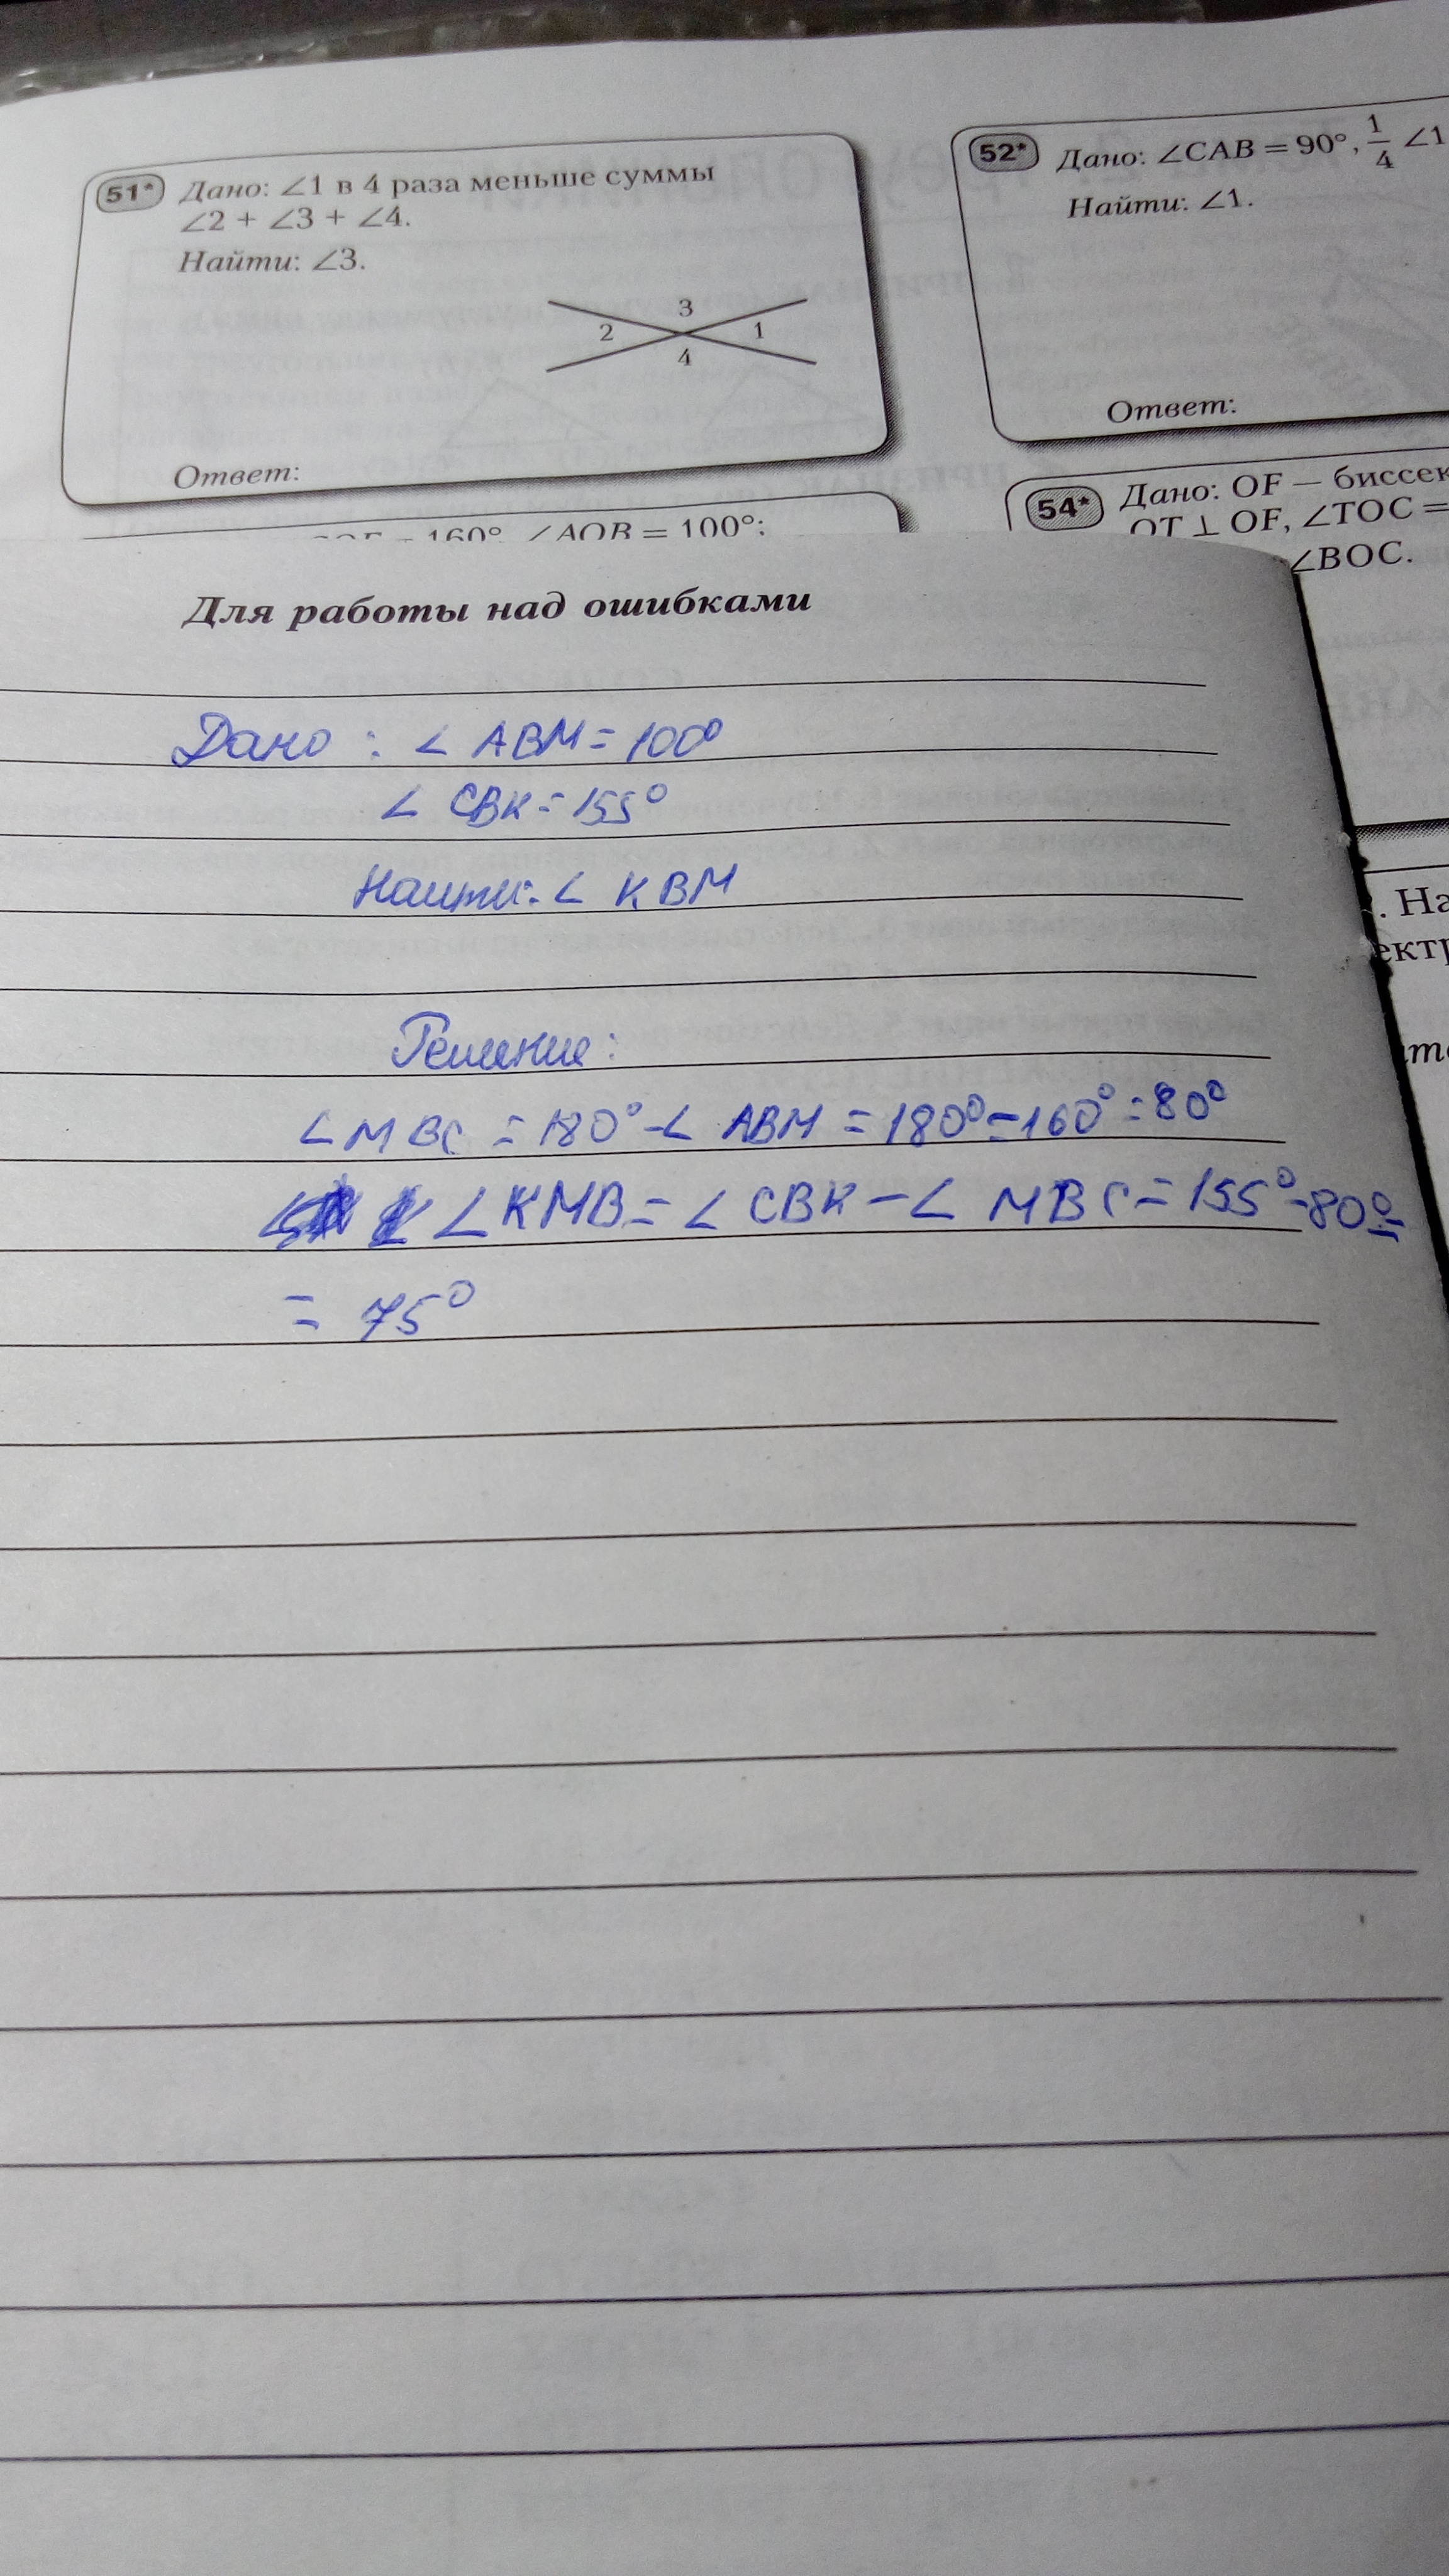 51* Дано: ∠1 в 4 раза меньше суммы
∠2 + ∠3 + ∠4.
Найти: ∠3.
3
2
1
4
Ответ:
52* Дано: ∠CAB = 90°, 1/4 ∠1
Найти: ∠1.
Ответ:
160°, ∠AOB = 100°;
54* Дано: OF — биссек
OT ⊥ OF, ∠TOC =
∠BOC.
Для работы над ошибками
Дано: ∠ ABM = 100°
∠ CBK = 155°
Найти: ∠ KBM
Решение:
∠MBC = 180° - ∠ ABM = 180° - 160° = 80°
∠KMB = ∠ CBK - ∠ MBC = 155° - 80° =
= 75°
. На
ект